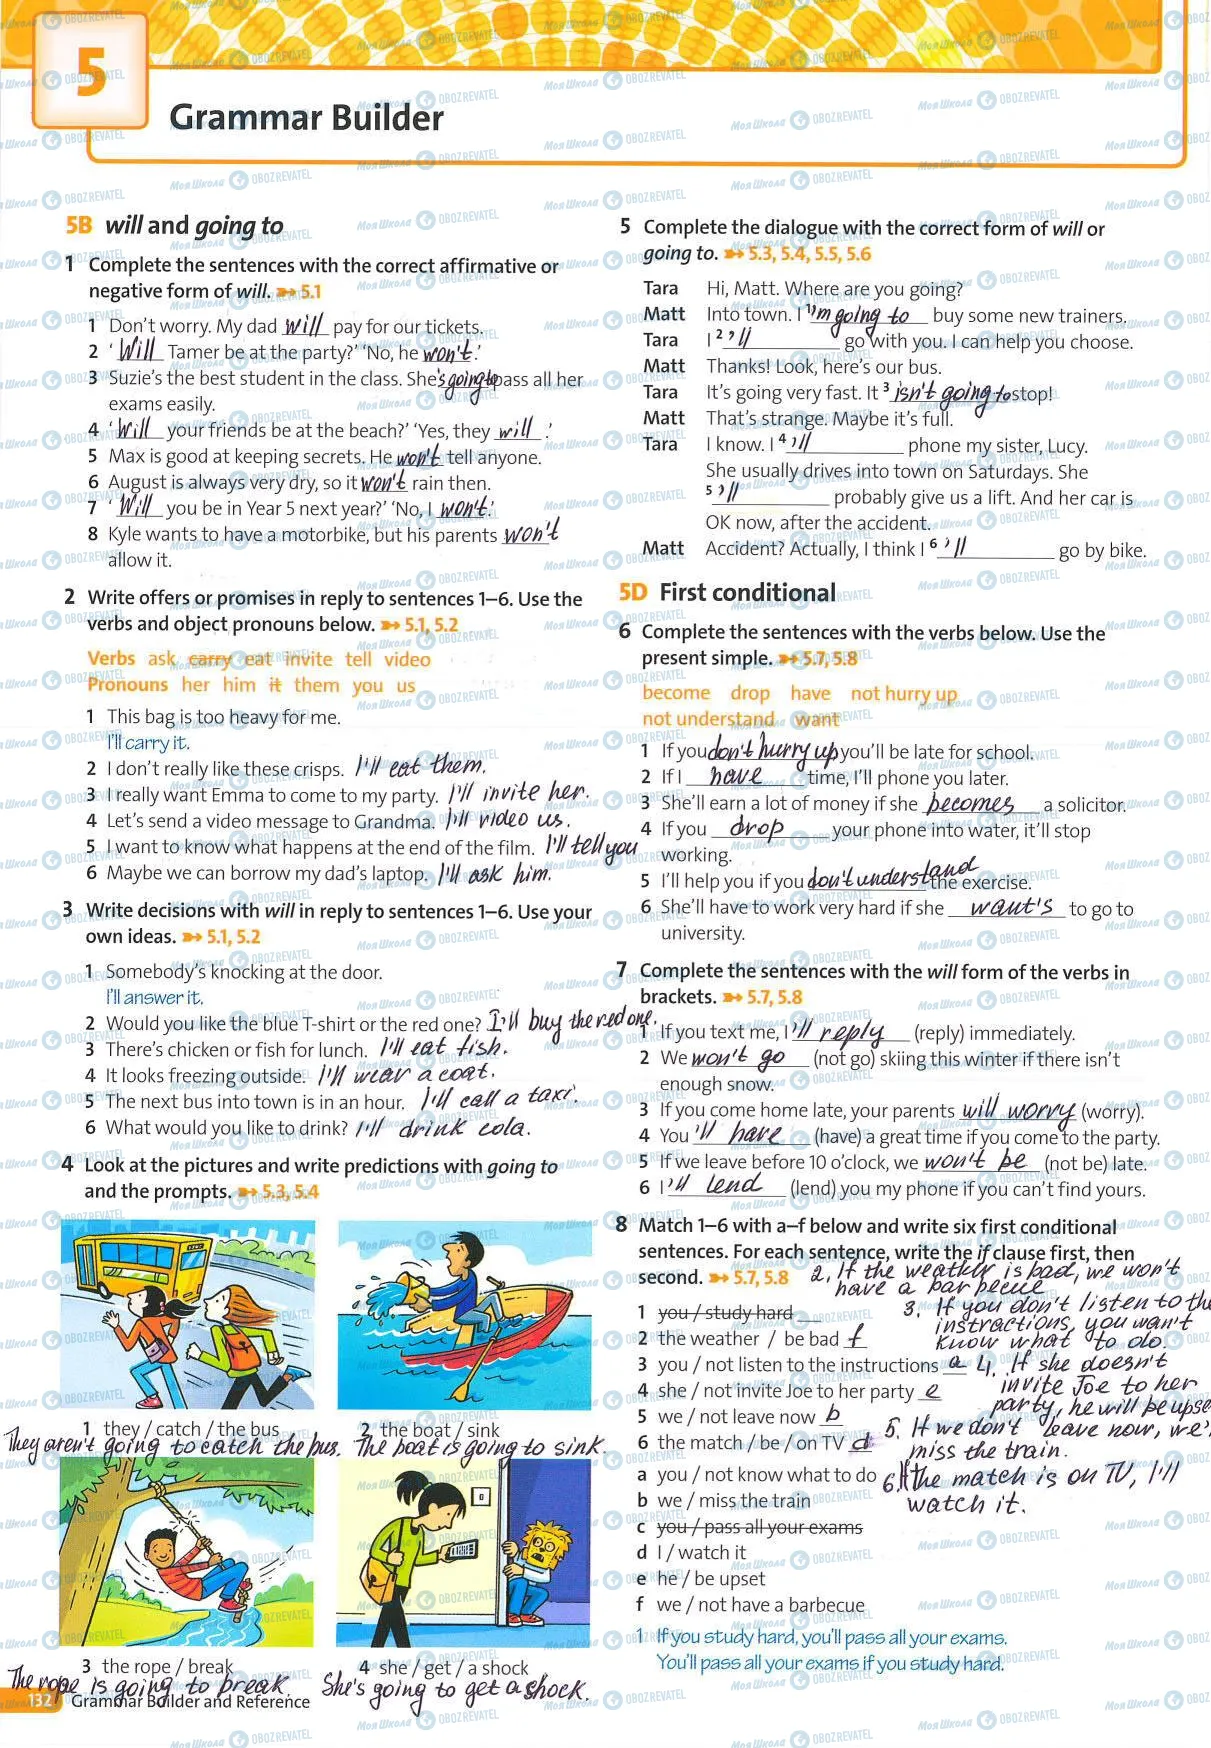 5
Grammar Builder
5B will and going to
1 Complete the sentences with the correct affirmative or
negative form of will. ➽ 5.1
1 Don't worry. My dad will pay for our tickets.
2 'Will Tamer be at the party?' 'No, he won't.'
3 Suzie's the best student in the class. She's going to pass all her
exams easily.
4 'Will your friends be at the beach?' 'Yes, they will.'
5 Max is good at keeping secrets. He won't tell anyone.
6 August is always very dry, so it won't rain then.
7 'Will you be in Year 5 next year?' 'No, I won't.'
8 Kyle wants to have a motorbike, but his parents won't
allow it.
2 Write offers or promises in reply to sentences 1–6. Use the
verbs and object pronouns below. ➽ 5.1, 5.2
Verbs ask carry eat invite tell video
Pronouns her him it them you us
1 This bag is too heavy for me.
I'll carry it.
2 I don't really like these crisps. I'll eat them.
3 I really want Emma to come to my party. I'll invite her.
4 Let's send a video message to Grandma. I'll video us.
5 I want to know what happens at the end of the film. I'll tell you
6 Maybe we can borrow my dad's laptop. I'll ask him.
3 Write decisions with will in reply to sentences 1–6. Use your
own ideas. ➽ 5.1, 5.2
1 Somebody's knocking at the door.
I'll answer it.
2 Would you like the blue T-shirt or the red one? I'll buy the red one.
3 There's chicken or fish for lunch. I'll eat fish.
4 It looks freezing outside. I'll wear a coat.
5 The next bus into town is in an hour. I'll call a taxi.
6 What would you like to drink? I'll drink cola.
4 Look at the pictures and write predictions with going to
and the prompts. ➽ 5.3, 5.4
1 they / catch / the bus
They aren't going to catch the bus.
2 the boat / sink
The boat is going to sink.
3 the rope / break
The rope is going to break.
4 she / get / a shock
She's going to get a shock.
132 Grammar Builder and Reference
5 Complete the dialogue with the correct form of will or
going to. ➽ 5.3, 5.4, 5.5, 5.6
Tara Hi, Matt. Where are you going?
Matt Into town. I 1 'm going to buy some new trainers.
Tara I 2 'll go with you. I can help you choose.
Matt Thanks! Look, here's our bus.
Tara It's going very fast. It 3 isn't going to stop!
Matt That's strange. Maybe it's full.
Tara I know. I 4 'll phone my sister, Lucy.
She usually drives into town on Saturdays. She
5 'll probably give us a lift. And her car is
OK now, after the accident.
Matt Accident? Actually, I think I 6 'll go by bike.
5D First conditional
6 Complete the sentences with the verbs below. Use the
present simple. ➽ 5.7, 5.8
become drop have not hurry up
not understand want
1 If you don't hurry up you'll be late for school.
2 If I have time, I'll phone you later.
3 She'll earn a lot of money if she becomes a solicitor.
4 If you drop your phone into water, it'll stop
working.
5 I'll help you if you don't understand the exercise.
6 She'll have to work very hard if she want's to go to
university.
7 Complete the sentences with the will form of the verbs in
brackets. ➽ 5.7, 5.8
1 If you text me, I 'll reply (reply) immediately.
2 We won't go (not go) skiing this winter if there isn't
enough snow.
3 If you come home late, your parents will worry (worry).
4 You 'll have (have) a great time if you come to the party.
5 If we leave before 10 o'clock, we won't be (not be) late.
6 I 'll lend (lend) you my phone if you can't find yours.
8 Match 1–6 with a–f below and write six first conditional
sentences. For each sentence, write the if clause first, then
second. ➽ 5.7, 5.8
2. If the weather is bad, we won't
have a barpecue
1 you / study hard
3. If you don't listen to the
instractions, you wan't
know what to do.
2 the weather / be bad f
3 you / not listen to the instructions a
4. If she doesn't
invite Joe to her
party, he will be upse
4 she / not invite Joe to her party e
5 we / not leave now b
5. If we don't leave now, we'
miss the train.
6 the match / be / on TV d
6. If the match is on TV, I'll
watch it.
a you / not know what to do
b we / miss the train
c you / pass all your exams
d I / watch it
e he / be upset
f we / not have a barbecue
1 If you study hard, you'll pass all your exams.
You'll pass all your exams if you study hard.
Моя Школа OBOZREVATEL